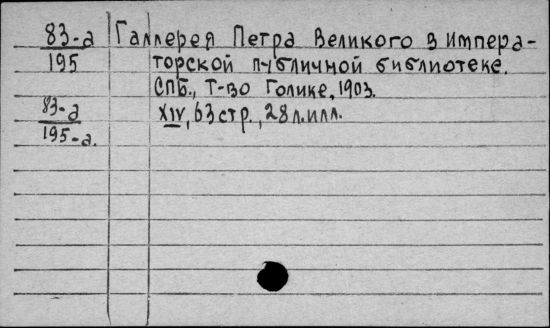 83-а Галлерея Петра Великого в импера-
195 торской публичной библиотеке.
СПБ., Т-во Голике, 1903.
83-а XIV, 63 стр., 28 л. илл.
195-а.